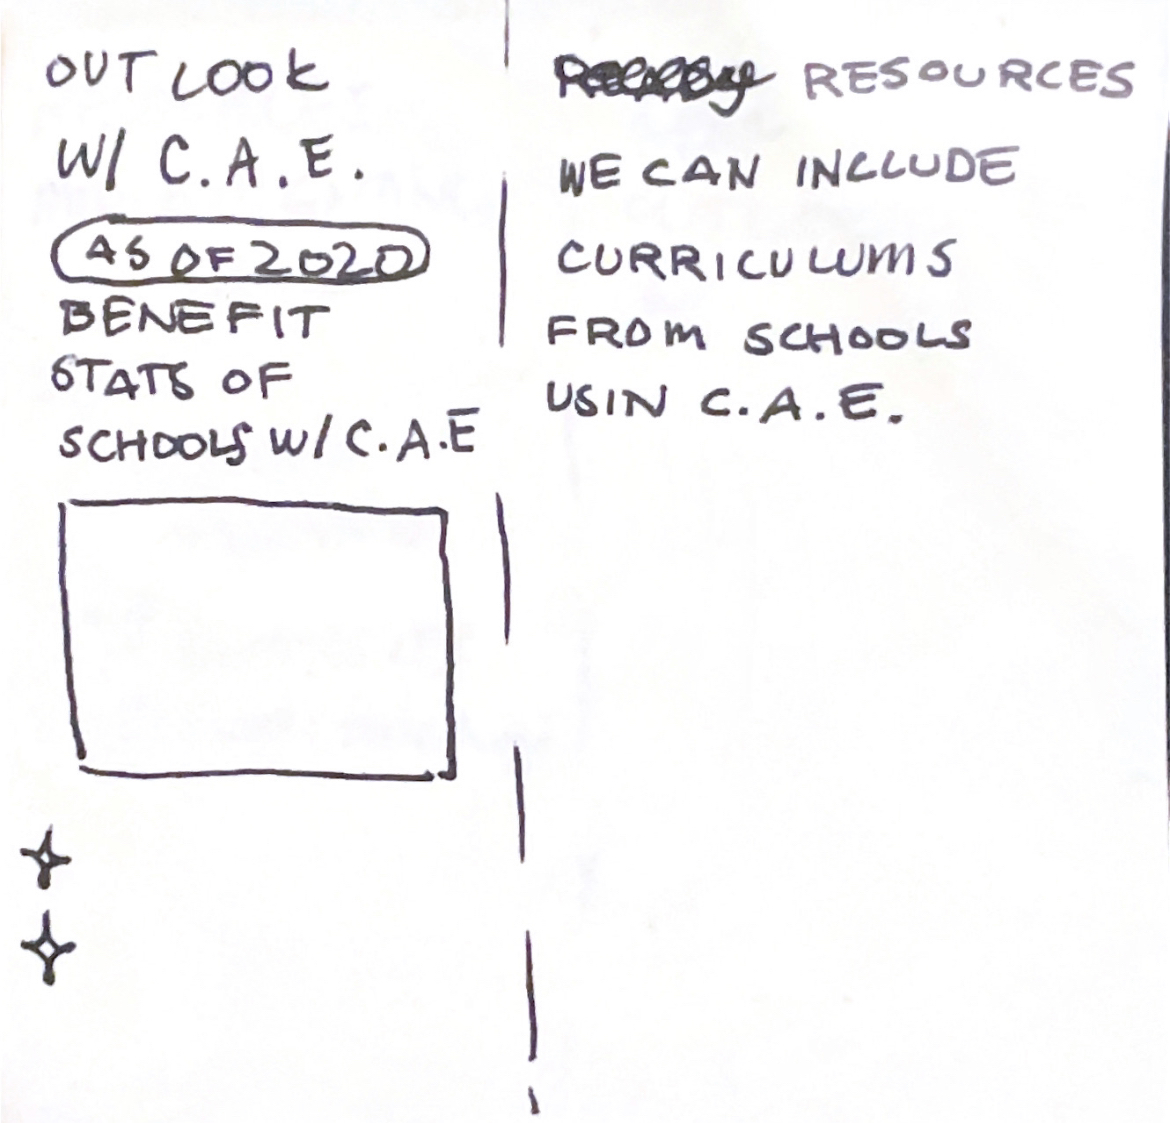 OUTLOOK
W/ C.A.E.
AS OF 2020
BENEFIT
STATS OF
SCHOOLS W/ C.A.E
RESOURCES
WE CAN INCLUDE
CURRICULUMS
FROM SCHOOLS
USIN C.A.E.